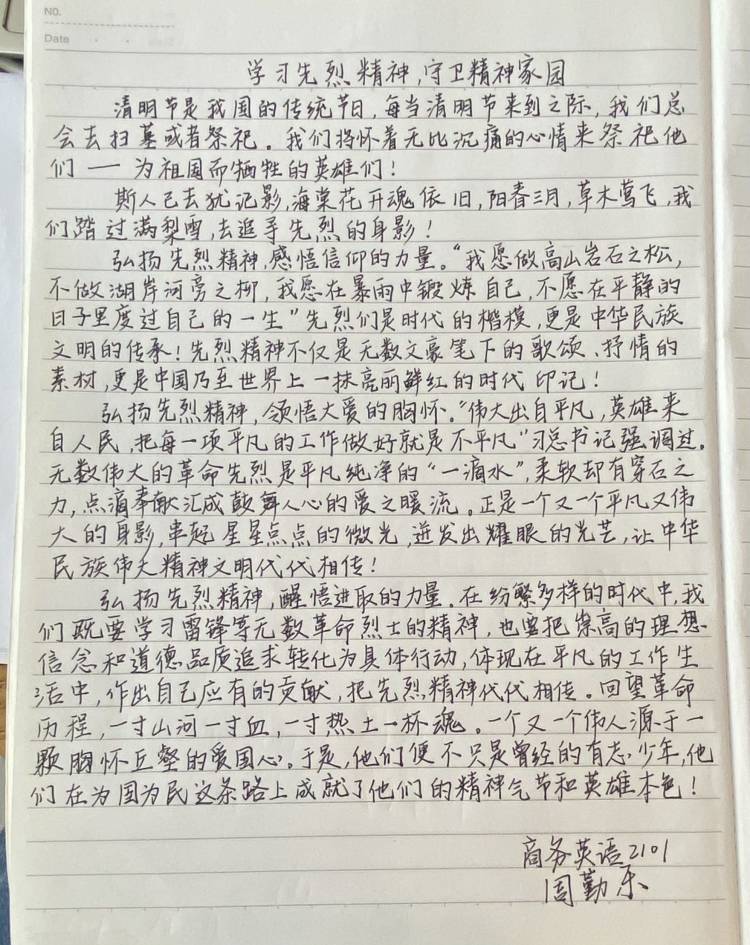 NO.
Date
学习先烈精神,守卫精神家园
清明节是我国的传统节日,每当清明节来到之际,我们总
会去扫墓或者祭祀。我们将怀着无比沉痛的心情来祭祀他
们——为祖国而牺牲的英雄们!
斯人已去犹记影,海棠花开魂依旧,阳春三月,草木莺飞,我
们踏过满梨雪,去追寻先烈的身影!
弘扬先烈精神,感悟信仰的力量。“我愿做高山岩石之松,
不做湖岸河旁之柳,我愿在暴雨中锻炼自己,不愿在平静的
日子里度过自己的一生”先烈们是时代的楷模,更是中华民族
文明的传承!先烈精神不仅是无数文豪笔下的歌颂、抒情的
素材,更是中国乃至世界上一抹亮丽鲜红的时代印记!
弘扬先烈精神,领悟大爱的胸怀。“伟大出自平凡,英雄来
自人民,把每一项平凡的工作做好就是不平凡”习总书记强调过。
无数伟大的革命先烈是平凡纯净的“一滴水”,柔软却有穿石之
力,点滴奉献汇成鼓舞人心的爱之暖流。正是一个又一个平凡又伟
大的身影,串起星星点点的微光,迸发出耀眼的光芒,让中华
民族伟大精神文明代代相传!
弘扬先烈精神,醒悟进取的力量。在纷繁多样的时代中,我
们既要学习雷锋等无数革命烈士的精神,也要把崇高的理想
信念和道德品质追求转化为具体行动,体现在平凡的工作生
活中,作出自己应有的贡献,把先烈精神代代相传。回望革命
历程,一寸山河一寸血,一寸热土一杯魂。一个又一个伟人源于一
颗胸怀丘壑的爱国心。于是,他们便不只是曾经的有志少年,他
们在为国为民这条路上成就了他们的精神气节和英雄本色!
商务英语2101
周勤乐